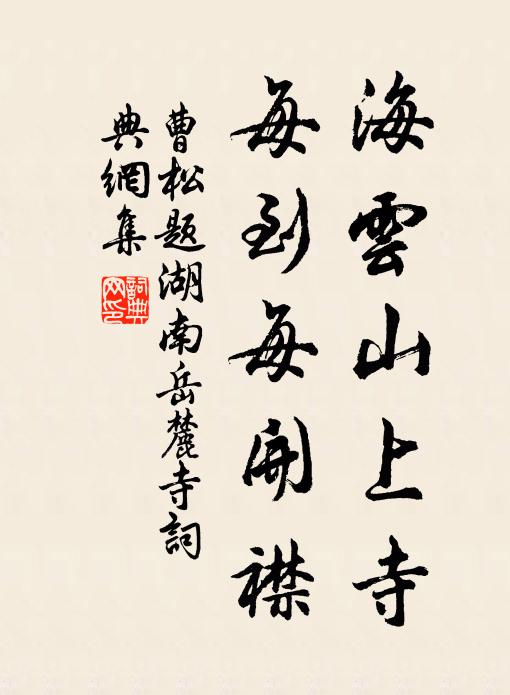 海雲山上寺
每到每開襟
曹松題湖南岳麓寺詞
典網集
詞典网印